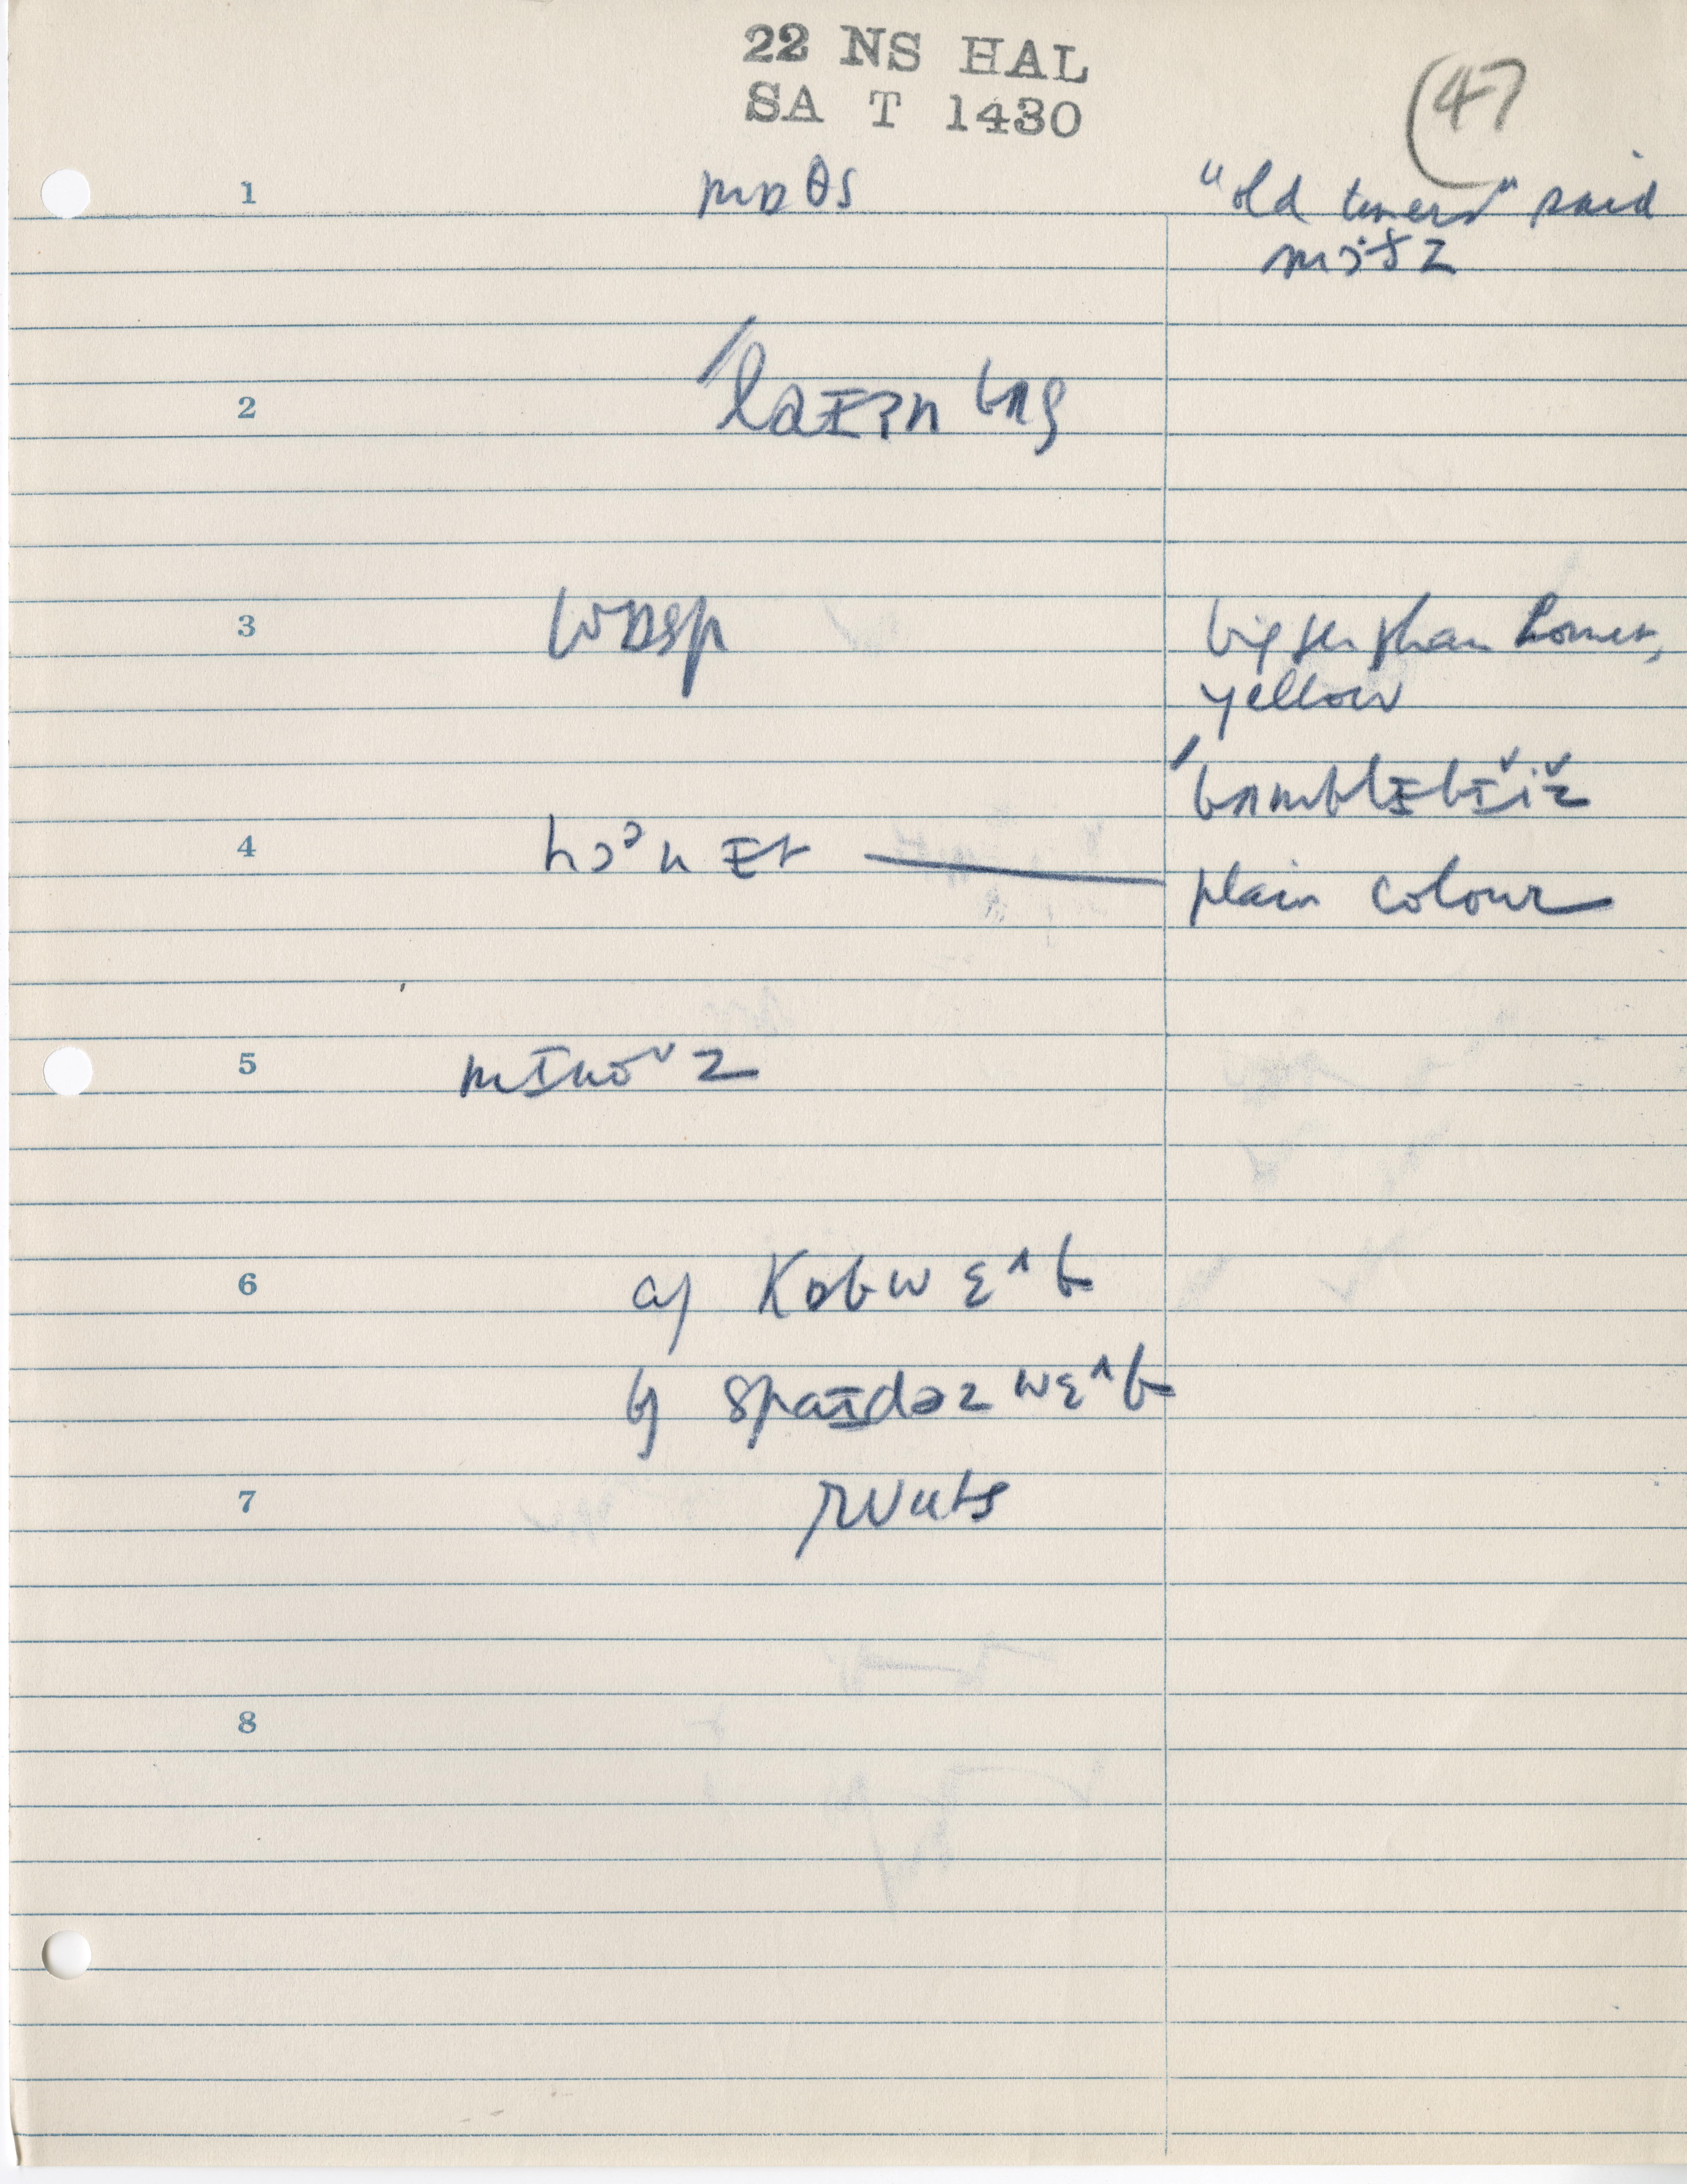 22 NS HAL
SA T 1430
47
1 mɒθs "old timers" said
mɔ·ðz
2 ˈlaɪʔn bʌg
3 wɒsp bigger than hornet,
yellow
ˈbʌmblɪbɪˇiˇz
4 hɔᵊnɪt — plain colour
5 mɪnoᵛz
6 a) kɒbwɛ^b
b) spaɪdəzwɛ^b
7 ruuts
8